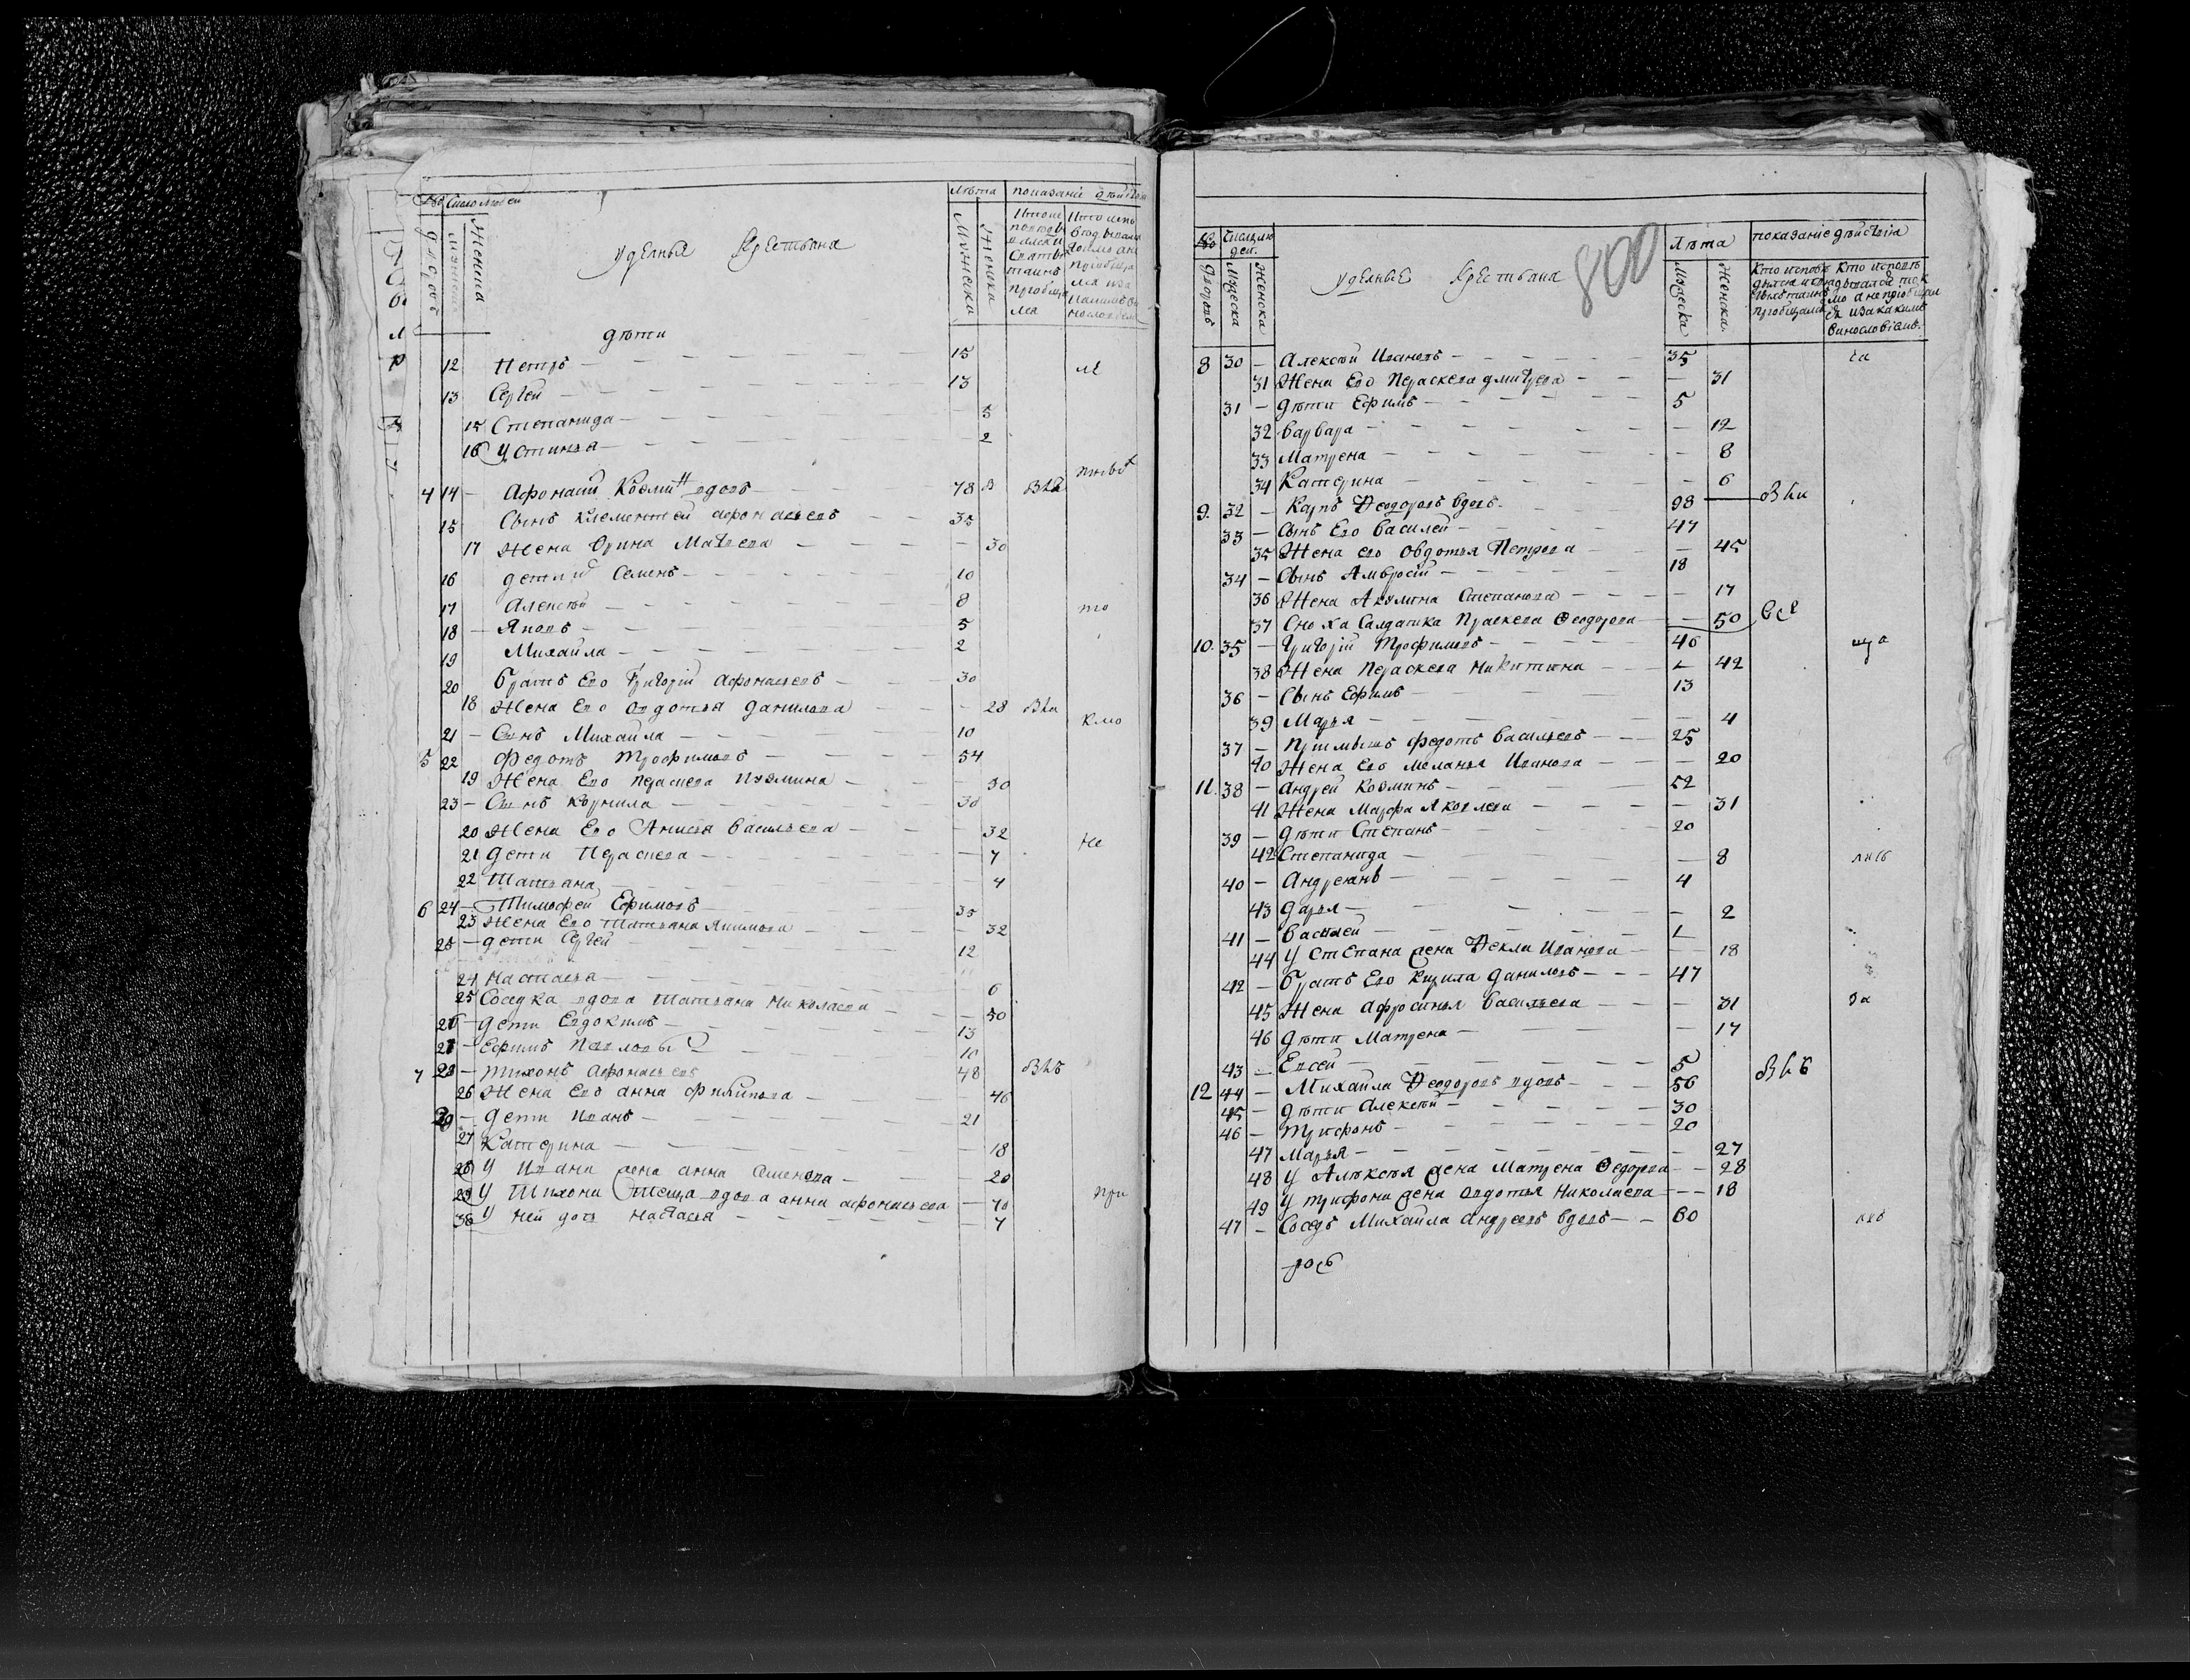 Число людей
Лѣта
показаніе дѣйства
дворовъ
Женска
Мужеска
Женска
уделныя Крестьяна
дѣти
12 Петръ — 15
13 Сергей — 13
15 Степанида — 5
16 Устинья — 2
4 14 — Афонасй Козмин вдовъ — 78
15 Сынъ Клементей афонасьевъ — 35
17 Жена Орина Матвева — 30
16 дети Семенъ — 10
17 Алексѣй — 8 то
18 — Яковъ — 5
19 Михайла — 2
20 братъ Его Григорій афонасьевъ — 30
18 Жена Его Овдотья данилова — 28
21 — Сынъ Михайла — 10 кмо
5 22 федотъ Трофимовъ — 54
19 Жена Его Пераскева Козмина — 50
23 — Сынъ Корнила — 30
20 Жена Его Анисья Васильева — 32 не
21 дети Пераскева — 7
22 Татьяна — 4
6 24 — Тимофей Ефимовъ — 35
23 Жена Его Татьяна Якимова — 32
25 — дети Сергей — 12
24 Настасья — 6
25 Соседка вдова Татьяна Николаева — 50
26 — дети Евдокимъ — 13
27 — Ефимъ Павловы — 10
7 28 — Тихонъ Афонасьевъ — 48
26 Жена Его анна Филипова — 46
29 — дети Иванъ — 21
27 Катерина — 18
28 У Ивана жена анна Семенова — 20
29 У Тихона теща вдова анна афонасьева — 70 при
30 У ней дочь настасья — 7
800
Число людей.
Лѣта
показаніе дѣйствія
дворовъ
Мужеска
Женска
уделныЕ Крестьяна
Мужеска
Женска
8 30 — Алексѣй Ивановъ — 35
31 Жена Его Пераскева дмитрева — 31
31 — дѣти Ефимъ — 5
32 варвара — 12
33 Матрена — 8
34 Катерина — 6
9. 32 — Карпъ Ѳеодоровъ вдовъ — 98
33 — Сынъ Его Василей — 47
35 Жена его Овдотья Петрова — 45
34 — Сынъ Амвросій — 18
36 Жена Акулина Степанова — 17
37 Сноха Салдатка Праскева Ѳеодорова — 50
10. 35 — Григорій Трофимовъ — 46 ща
38 Жена Пераскева Никитина — 42
36 — Сынъ Ефимъ — 13
39 Марья — 4
37 — Пріимышъ федотъ Васильевъ — 25
40 Жена Его Меланья Иванова — 20
11. 38 — Андрей Козминъ — 52
41 Жена Марфа Яковлева — 31
39 — дѣти Степанъ — 20
42 Степанида — 8
40 — Андреянъ — 4
43 дарья — 2
41 — Василей — 1
44 У Степана жена Ѳекла Иванова — 18
42 — братъ Его Кирила даниловъ — 47
45 Жена Афросинья Васильева — 31 за
46 дѣти Матрена — 17
43 — Елсей — 5
12 44 — Михайла Ѳеодоровъ вдовъ — 56
45 — дѣти Алексѣй — 30
46 — Трифонъ — 20
47 Марья — 27
48 У Алѣксѣя жена Матрена Ѳедорова — 28
49 У Трифона жена Овдотья Николаева — 18
47 — Соседъ Михайла Андреевъ вдовъ — 60